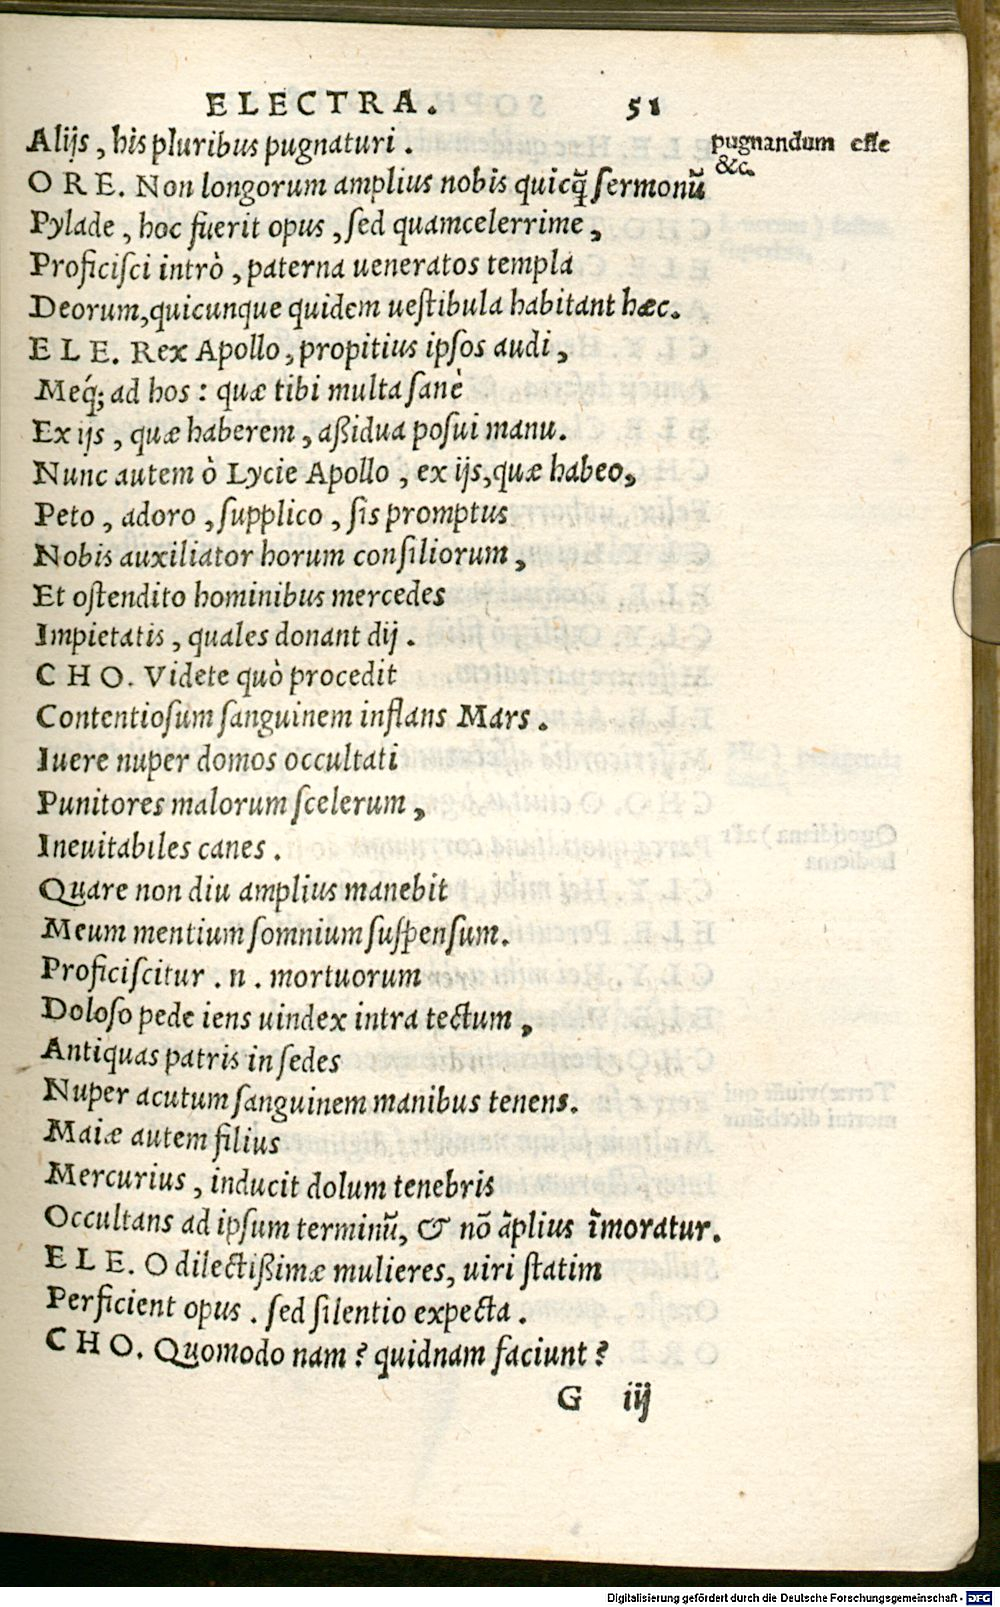 ELECTRA. 51
Alijs, his pluribus pugnaturi.
pugnandum esse
&c.
O R E. Non longorum amplius nobis quicq̃ sermonũ
Pylade, hoc fuerit opus, sed quamcelerrime,
Proficisci intrò, paterna ueneratos templa
Deorum, quicunque quidem uestibula habitant hæc.
E L E. Rex Apollo, propitius ipsos audi,
Meq́; ad hos: quæ tibi multa sanè
Ex ijs, quæ haberem, aßidua posui manu.
Nunc autem ò Lycie Apollo, ex ijs, quæ habeo,
Peto, adoro, supplico, sis promptus
Nobis auxiliator horum consiliorum,
Et ostendito hominibus mercedes
Impietatis, quales donant dij.
C H O. Videte quò procedit
Contentiosum sanguinem inflans Mars.
Iuere nuper domos occultati
Punitores malorum scelerum,
Ineuitabiles canes.
Quare non diu amplius manebit
Meum mentium somnium suspensum.
Proficiscitur .n. mortuorum
Doloso pede iens uindex intra tectum,
Antiquas patris in sedes
Nuper acutum sanguinem manibus tenens.
Maiæ autem filius
Mercurius, inducit dolum tenebris
Occultans ad ipsum terminũ, & nõ ãplius ĩmoratur.
E L E. O dilectißimæ mulieres, uiri statim
Perficient opus. sed silentio expecta.
C H O. Quomodo nam? quidnam faciunt?
G iij
Digitalisierung gefördert durch die Deutsche Forschungsgemeinschaft - DFG